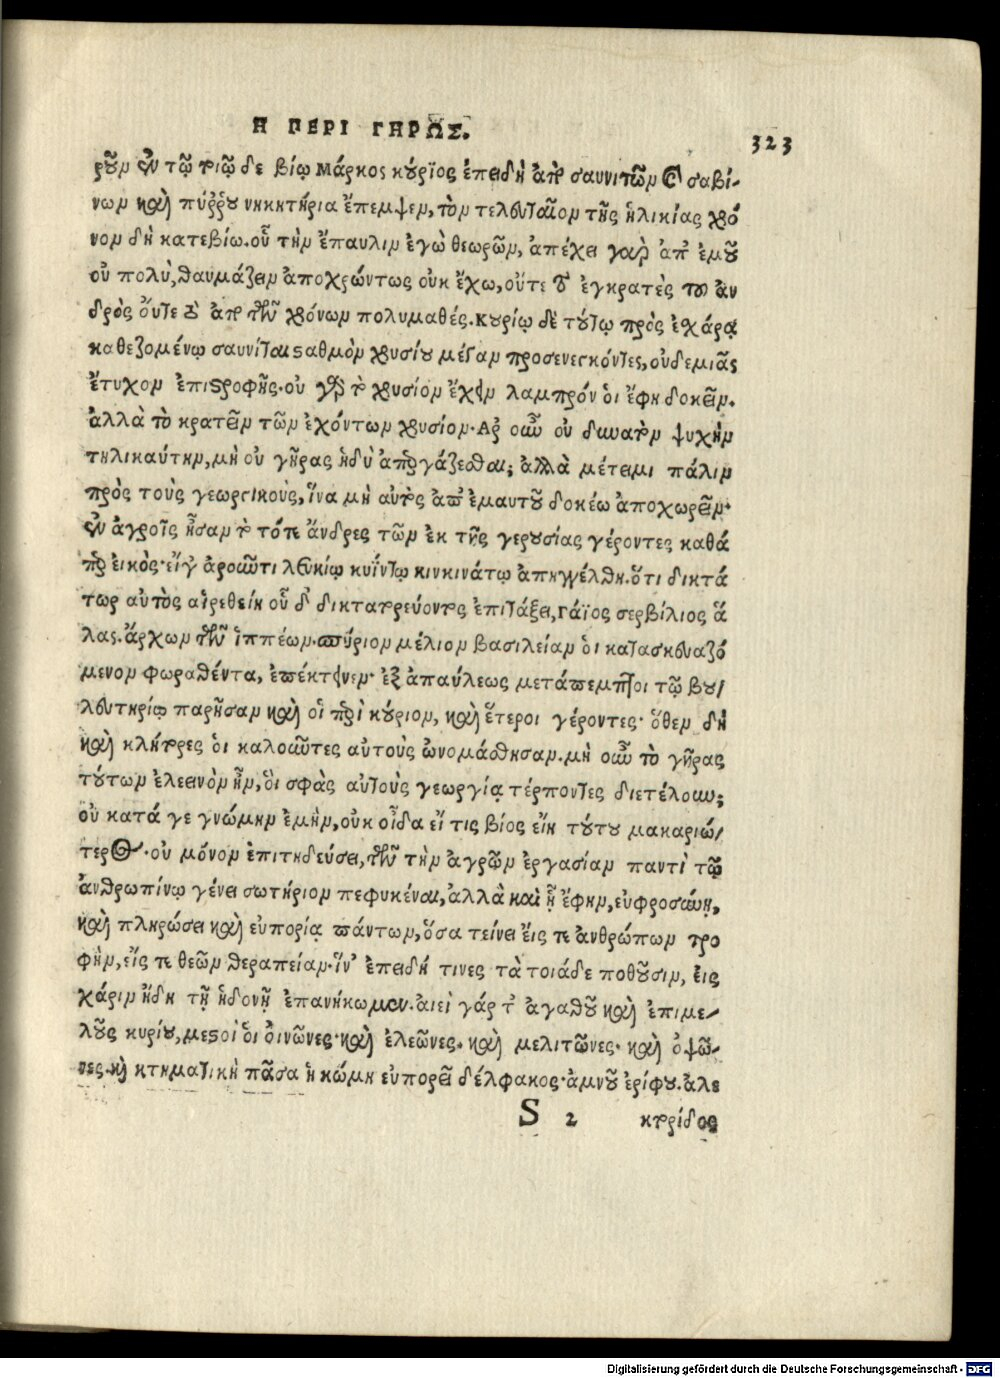 Η ΠΕΡΙ ΓΗΡΩΣ.
323
ροῦν ἐν τῷ τοιῷδε βίῳ Μάρκος κύριος ἐπειδὴ ἀπὸ σαυνιτῶν καὶ σαβί-
νων καὶ πύρρου νηκητήρια ἔπεμψεν, τὸν τελευταῖον τῆς ἡλικίας χρό
νον δὴ κατεβίω. οὗ τὴν ἔπαυλιν ἐγὼ θεωρῶν, ἀπέχει γὰρ ἀπ' ἐμοῦ
οὐ πολὺ, θαυμάζειν ἀποχρώντως οὐκ ἔχω, οὔτε τὸ ἐγκρατὲς τοῦ ἀν
δρὸς οὔτε τὸ ἀπὸ τῶν χρόνων πολυμαθές. Κυρίῳ δὲ τούτῳ πρὸς ἐχάρᾳ
καθεζομένῳ σαυνίται σαθμὸν χρυσίου μέγαν προσενεγκόντες, οὐδεμιᾶς
ἔτυχον ἐπιστροφῆς. οὐ γὰρ τὸ χρυσίον ἔχειν λαμπρόν οἱ ἔφη δοκεῖν.
ἀλλὰ τὸ κρατεῖν τῶν ἐχόντων χρυσίον. Ἆρ οὖν οὐ δυνατὸν ψυχὴν
τηλικαύτην, μὴ οὐ γῆρας ἡδὺ ἀπεργάζεσθαι; ἀλλὰ μέτειμι πάλιν
πρὸς τοὺς γεωργικοὺς, ἵνα μὴ αὐτὸς ἀπ' ἐμαυτοῦ δοκέω ἀποχωρεῖν.
ἐν ἀγροῖς ἦσαν τὸ τότε ἄνδρες τῶν ἐκ τῆς γερουσίας γέροντες καθά
περ εἰκὸς. εἴγ' ἀροῶντι λευκίῳ κυίντῳ κινκινάτῳ ἀπηγγέλθη. ὅτι δικτά
τωρ αὐτὸς αἱρεθείη οὗ δὴ δικτατορεύοντος ἐπιτάξει, γάϊος σερβίλιος ἅ
λας. ἄρχων τῶν ἱππέων. σπύριον μέλιον βασιλείαν οἱ κατασκευαζό
μενον φωραθέντα, ἐπέκτεινεν. ἐξ ἀπαύλεως μετάπεμπτοι τῷ βου/
λευτηρίῳ παρῆσαν καὶ οἱ περὶ κύριον, καὶ ἕτεροι γέροντες. ὅθεν δὴ
καὶ κλήτορες οἱ καλοῦντες αὐτοὺς ὠνομάσθησαν. μὴ οὖν τὸ γῆρας
τούτων ἐλεεινὸν ἦν, οἳ σφὰς αὐτοὺς γεωργίᾳ τέρποντες διετέλουν;
οὐ κατά γε γνώμην ἐμὴν, οὐκ οἶδα εἴ τις βίος εἴη τούτου μακαριώ/
τερος. οὐ μόνον ἐπιτηδεύσει, τῶν τὴν ἀγρῶν ἐργασίαν παντὶ τῷ
ἀνθρωπίνῳ γένει σωτήριον πεφυκέναι, ἀλλὰ καὶ ᾗ ἔφην, εὐφροσύνῃ,
καὶ πληρώσει καὶ εὐπορίᾳ πάντων, ὅσα τείνει εἴς τε ἀνθρώπων τρο
φὴν, εἴς τε θεῶν θεραπείαν. ἵν' ἐπειδή τινες τὰ τοιάδε ποθοῦσιν, ἐις
χάριν ἤδη τῇ ἡδονῇ ἐπανήκωμεν. αἰεὶ γάρ τοῦ ἀγαθοῦ καὶ ἐπιμε-
λοῦς κυρίου, μεστοὶ οἱ ὀινῶνες. καὶ ἐλεῶνες. καὶ μελιτῶνες. καὶ ὀψῶ-
νες. καὶ κτηματικὴ πᾶσα ἡ κώμη εὐπορεῖ δέλφακος. ἀμνοῦ ἐρίφου. ἀλε
S 2 κτορίδος
Digitalisierung gefördert durch die Deutsche Forschungsgemeinschaft - DFG